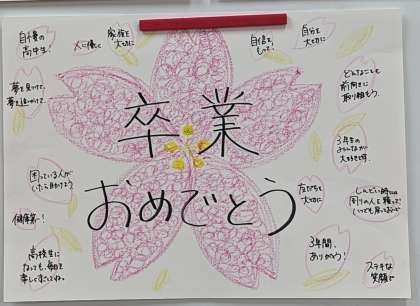 自慢の
高中生!
人に優しく
家族を
大切に
自信を
もって!
自分を
大切に
夢を見つけて、
夢を追いかけて。
どんなことも
前向きに
取り組もう。
卒業
おめでとう
3年生の
みんなが
大好きです。
困っている人が
いたら助けよう
友だちを
大切に
しんどい時は
周りの人を頼って!
いつでも戻っておいで
健康第一!
高校生に
なっても、毎日を
楽しくすごしてね。
3年間、
ありがとう!
ステキな
笑顔で